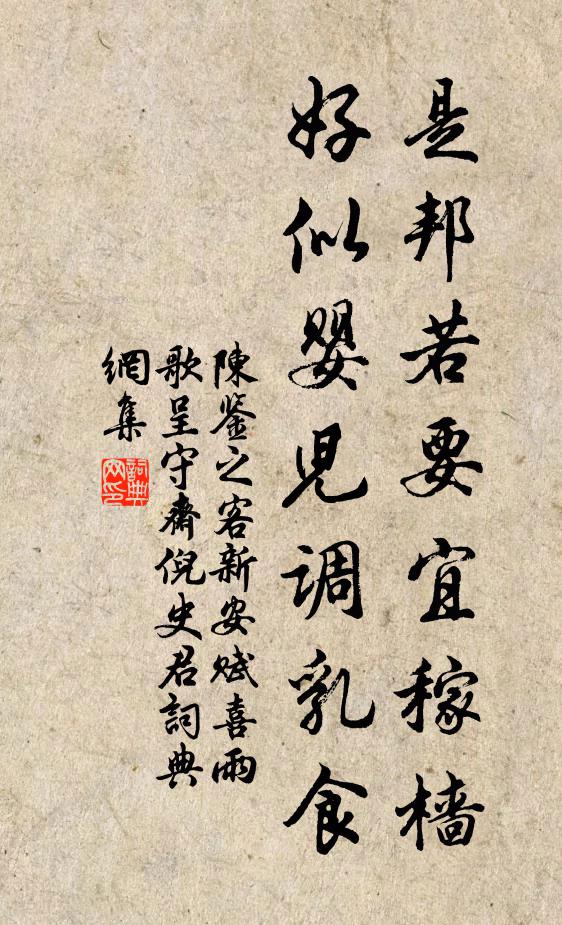 是邦若要宜稼檣
好似嬰兒調乳食
陳鑒之客新安賦喜雨
歌呈守齋倪史君詞典
網集
詞典网印